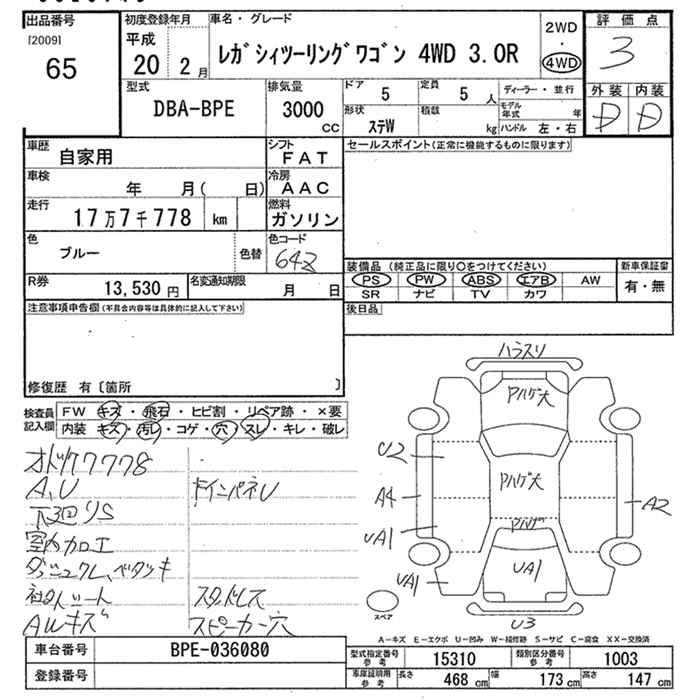 出品番号
[2009]
65
初度登録年月
平成
20 2月
車名・グレード
レガシィツーリングワゴン 4WD 3.0R
2WD
・
4WD
評価点
3
外装 内装
D D
型式
DBA-BPE
排気量
3000
cc
ドア
5
定員
5 人
形状
ステW
積載
kg
ディーラー・並行
モデル年式 年
ハンドル 左・右
車歴
自家用
シフト
FAT
車検
年 月( 日)
冷房
AAC
走行
17万7千778 km
燃料
ガソリン
色
ブルー
色替
色コード
64Z
R券
13,530 円
名変通知期限
月 日
セールスポイント(正常に機能するものに限ります)
装備品(純正品に限り○をつけてください)
PS PW ABS エアB AW
SR ナビ TV カワ
新車保証書
有・無
後日品
注意事項申告欄(不具合内容等は具体的に記入して下さい)
修復歴 有〔箇所 〕
検査員記入欄
FW キズ・飛石・ヒビ割・リペア跡・×要
内装 キズ・汚レ・コゲ・穴・スレ・キレ・破レ
A,U
下廻りS
室内加工
AWキズ
インパネU
スピーカー穴
ハラスリ
Aハゲ大
U2
Aハゲ大
A4
A2
Aハゲ
UA1
UA1
UA1
U3
スペア
A−キズ E−エクボ U−凹み W−補修跡 S−サビ C−腐食 XX−交換済
車台番号
BPE-036080
登録番号
型式指定番号
参考
15310
類別区分番号
参考
1003
車庫証明用
参考
長さ 468 cm 幅 173 cm 高さ 147 cm